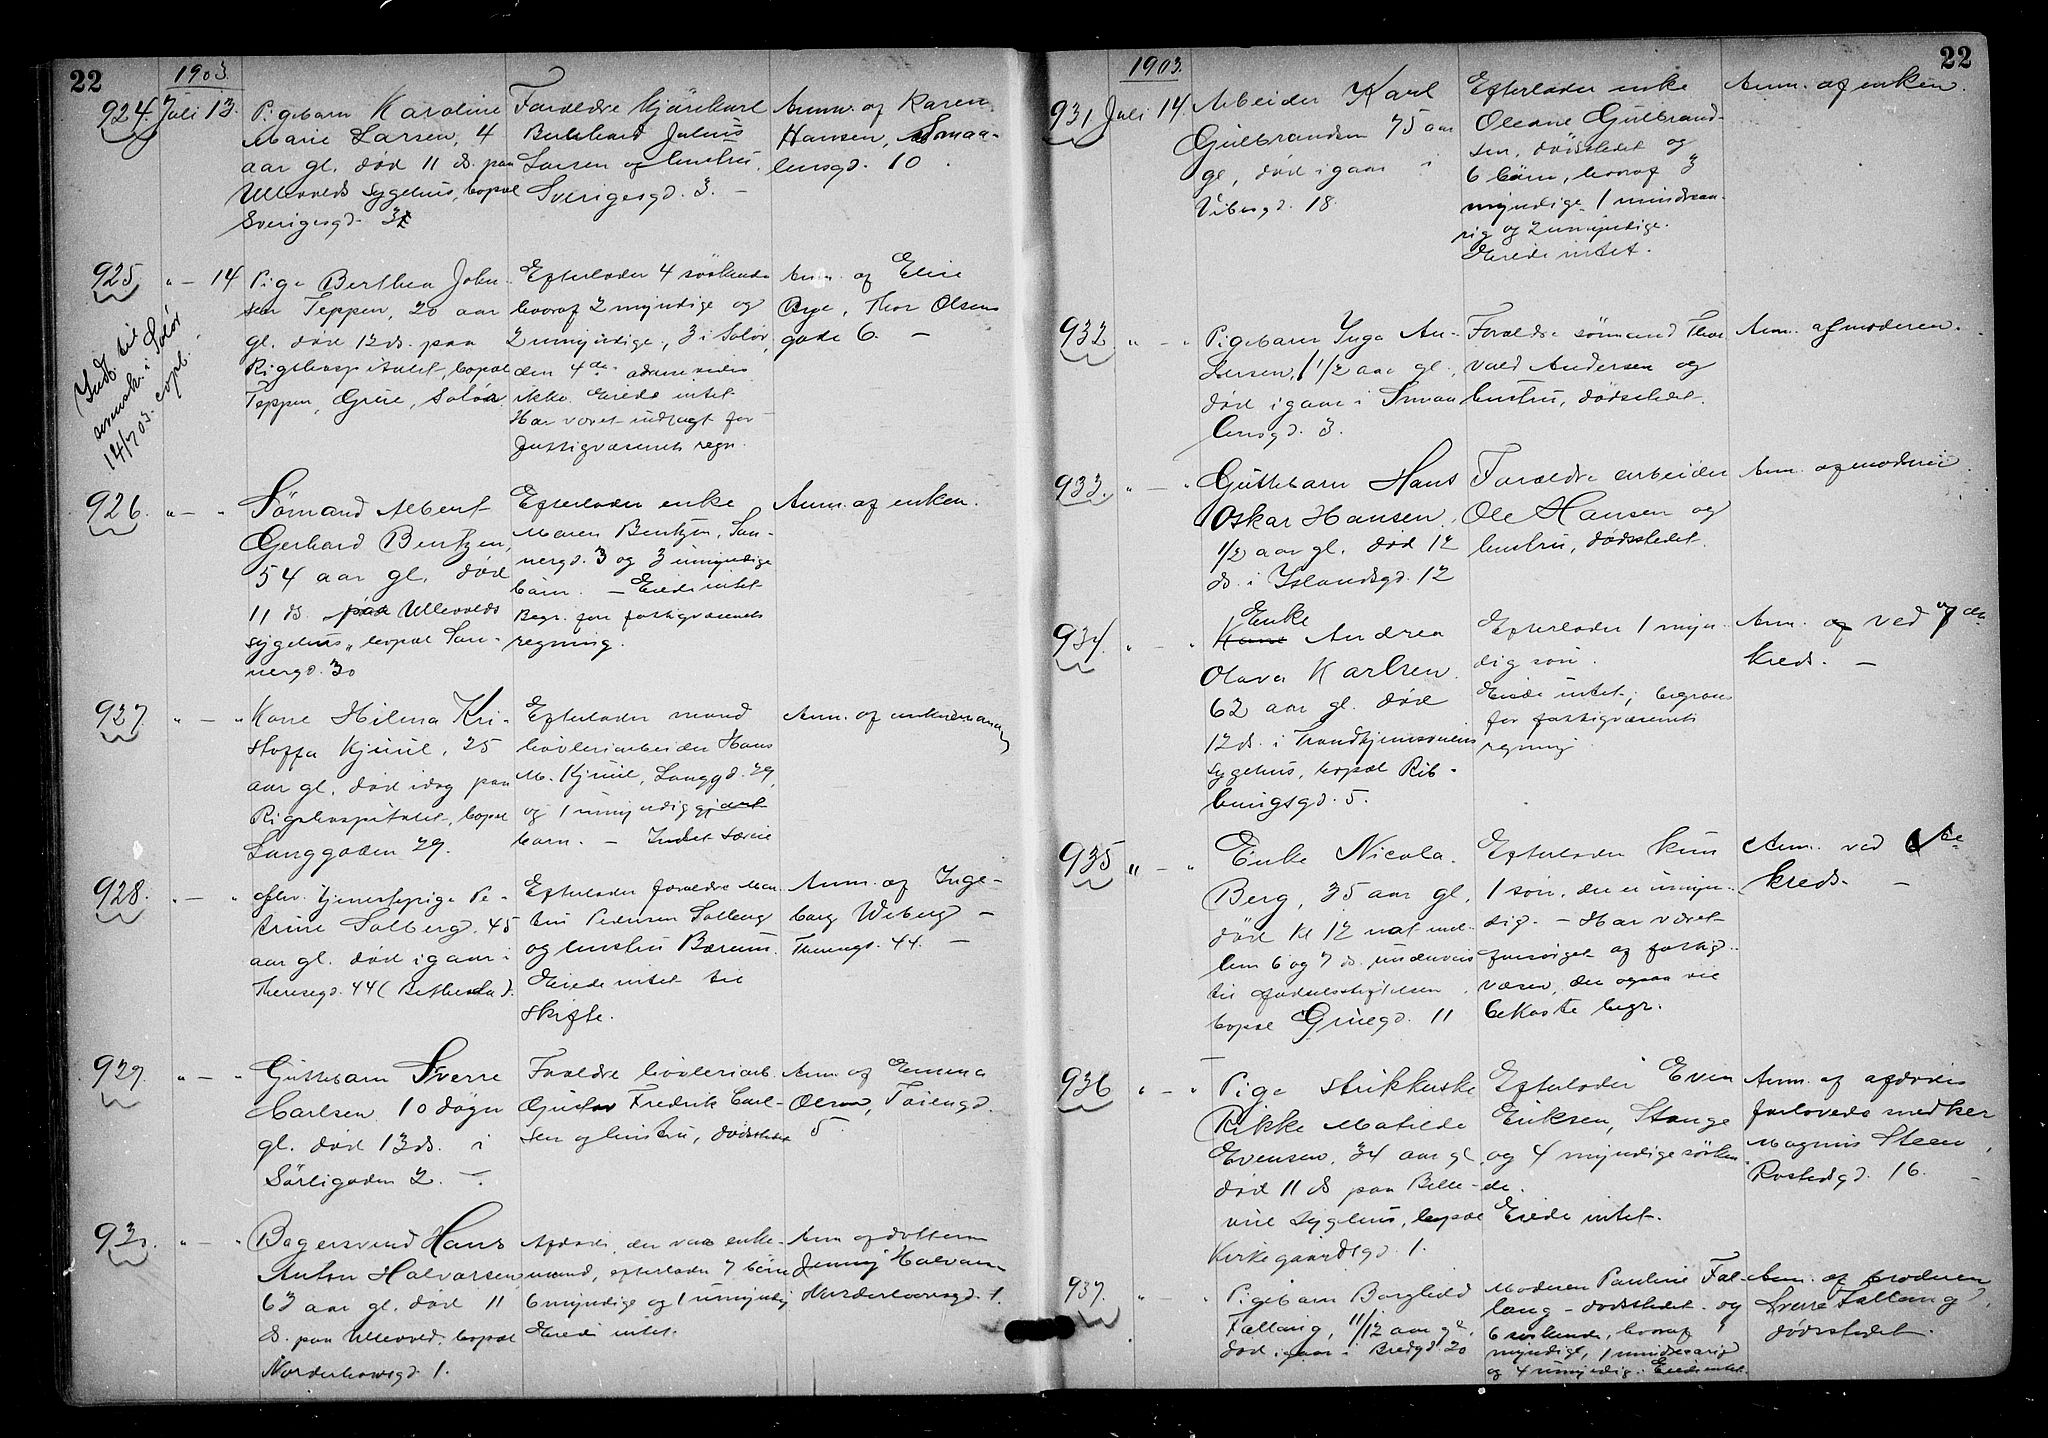 22
1903.
924 Juli 13.
Pigebarn Karoline
Marie Larsen, 4
aar gl. død 11 ds. paa
Ullevolds sygehus, bopæl
Sverigesgd. 3
Forældre kjørekarl
Bernhard Julius
Larsen og hustru
Sverigesgd. 3. –
Anm. af Karen
Hansen, Smaa-
lensgd. 10
925. " – 14
Pige Berthea John-
sen Teppen, 20 aar
gl. død 12 ds. paa
Rigshospitalet, bopæl
Teppen, Grue, Solør.
Efterlader 4 søskende
hvoraf 2 myndige og
2 umyndige, 3 i Solør,
den 4de adresse vides
ikke. Eiede intet
Har været indlagt for
Fattigvæsenets regn.
Anm. af Elise
Bye, Thor Olsens
gade 6. –
Indb. til
lensm. i Solør
14/7 03. copl.
926. " – "
Sømand Albert
Gerhard Bentzen,
54 aar gl. død
11 ds. paa Ullevolds
sygehus, bopæl San-
nergd. 30
Efterlader enke
Maren Bentzen, San-
nergd. 3 og 3 umyndige
børn. – Eiede intet
Begr. for fattigvæsenets
regning.
Anm. af enken.
927. " – "
Kone Hilma Kri-
stoffa Kjuul, 25
aar gl. død idag paa
Rigshospitalet, bopæl
Langgaden 29.
Efterlader mand
høvleriarbeider Hans
M. Kjuul, Langgd. 29,
og 1 umyndig
barn. – Intet særeie
Anm. af enkemanden
928. " – "
Fhv. tjenestepige Pe-
trine Solberg, 45
aar gl. død igaar i
Theresegd. 44 (Bethesda).
Efterlader forældre Mar-
tin Pedersen Solberg
og hustru Bærum.
Eiede intet til
skifte.
Anm. af Inge-
borg Wiberg –
Theresgd. 44. –
929. " – "
Guttebarn Sverre
Carlsen 10 døgn
gl. død 13 ds. i
Sørligaden 2. –
Forældre høvleriarb.
Gustav Fredrik Carl-
sen og hustru, dødsstedet
Anm. af Emma
Olsen, Tøiengd.
5
930. " – "
Bagersvend Hans
Anton Halvorsen
63 aar gl. død 11
ds. paa Ullevold, bopæl
Norderhovsgd. 1.
Afdøde, der var enke-
mand, efterlader 7 børn
6 myndige og 1 umyndig
Eiede intet.
Anm. af datteren
Jenny Halvorsen
Norderhovsgd. 1.
22
1903.
931 Juli 14.
Arbeider Karl
Gulbrandsen 75 aar
gl., død igaar i
Vibesgd. 18.
Efterlader enke
Oleane Gulbrand-
sen, dødsstedet og
6 børn, hvoraf 3
myndige 1 mindreaa-
rig og 2 umyndige.
Eiede intet.
Anm. af enken.
932 " – "
Pigebarn Inga An-
dersen, 1 1/2 aar gl.,
død igaar i Smaa
lensgd. 3.
Forældre sømand Thor
vald Andersen og
hustru, dødsstedet.
Anm. af moderen.
933. " – "
Guttebarn Hans
Oskar Hansen,
1/2 aar gl. død 12
ds. i Islandsgd. 12
Forældre arbeider
Ole Hansen og
hustru, dødsstedet.
Anm. af moderen.
934. " – "
Enke
Kone Andrea
Olava Karlsen
62 aar gl. død
12 ds. i Trondhjemsveiens
sygehus, bopæl Rib-
bungsgd. 5.
Efterlader 1 myn-
dig søn.
Eiede intet; begraves
for fattigvæsenets
regning.
Anm. af ved 7de
kreds. –
935 " – "
Enke Nicola
Berg, 35 aar gl.
død kl 12 nat mel-
lem 6 og 7 ds. underveis
til fødselsstiftelsen
bopæl Gruegd. 11
Efterlader kun
1 søn, der er umyn-
dig. – Har været
forsørget af fattig-
væsen, der ogsaa vil
bekoste begr.
Anm. ved
kreds. –
936 " – "
Pige strikkerske
Rikke Matilde
Evensen, 34 aar gl.
død 11 ds paa Belle-
vue sygehus, bopæl
Kirkegaardsgd. 1.
Efterlader Even
Eriksen, Stange
og 4 myndige søsken
de.
Eiede intet.
Anm. af afdødes
forlovede snedker
Magnus Steen,
Rostedsgd. 16. –
937. " – "
Pigebarn Borghild
Fallang, 11/12 aar gl.
død igaar i Bredgd 20
Moderen Pauline Fal-
lang – dødsstedet og
6 søskende, hvoraf 1
myndig, 1 mindreaarig
og 4 umyndig. Eiede intet.
Anm. af broderen
Sverre Fallang,
dødsstedet.